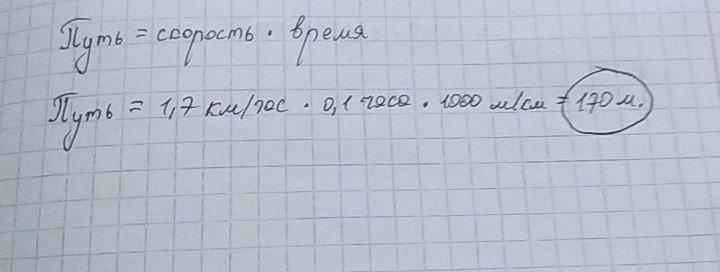 Путь = скорость · время
Путь = 1,7 км/час · 0,1 часа · 1000 м/км = 170 м.